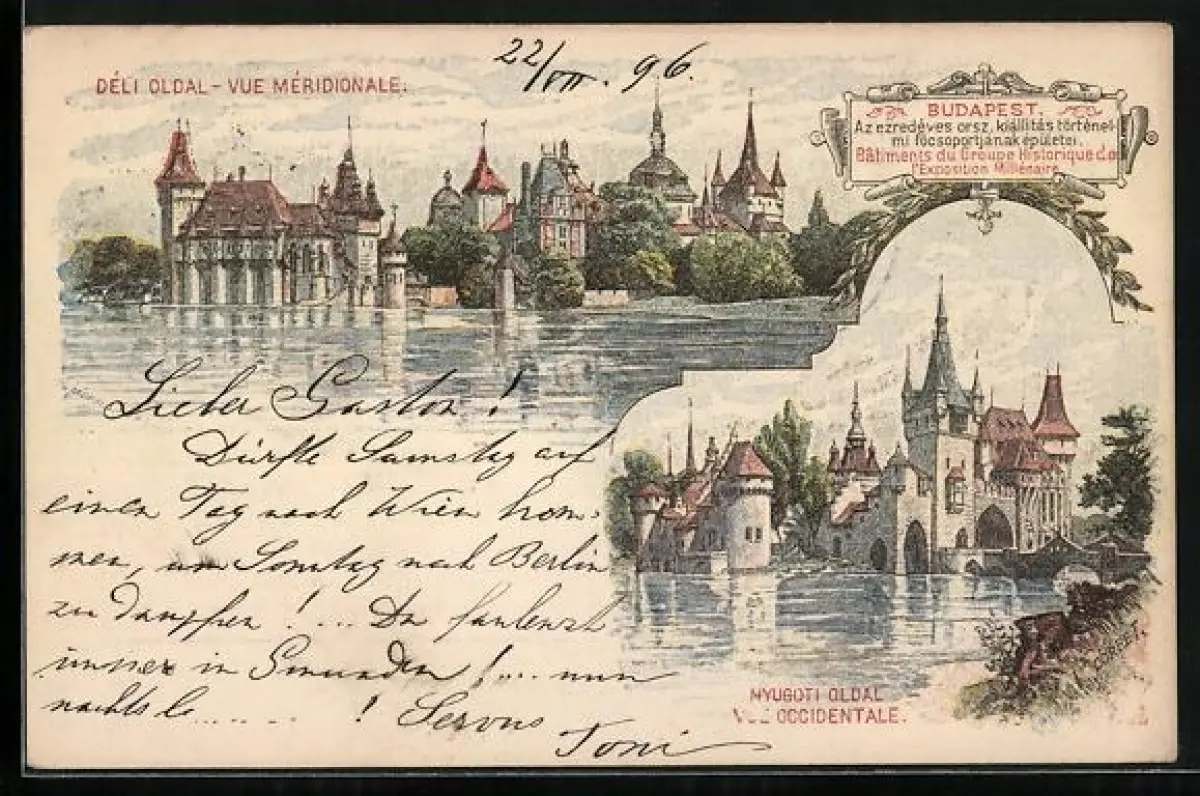 22/VII. 96.
DÉLI OLDAL – VUE MÉRIDIONALE.
BUDAPEST.
Az ezredéves orsz. kiállítás történel-
mi főcsoportjának épületei.
Bâtiments du Groupe Historique de
l'Exposition Millénaire
Lieber Gaston!
Dürfte Samstag auf
einen Tag nach Wien kom-
men, um Sonntag nach Berlin
zu dampfen! ... Du faulenzst
in Gmunden !... nun
nachts ........!  Servus
Toni
NYUGOTI OLDAL
VUE OCCIDENTALE.